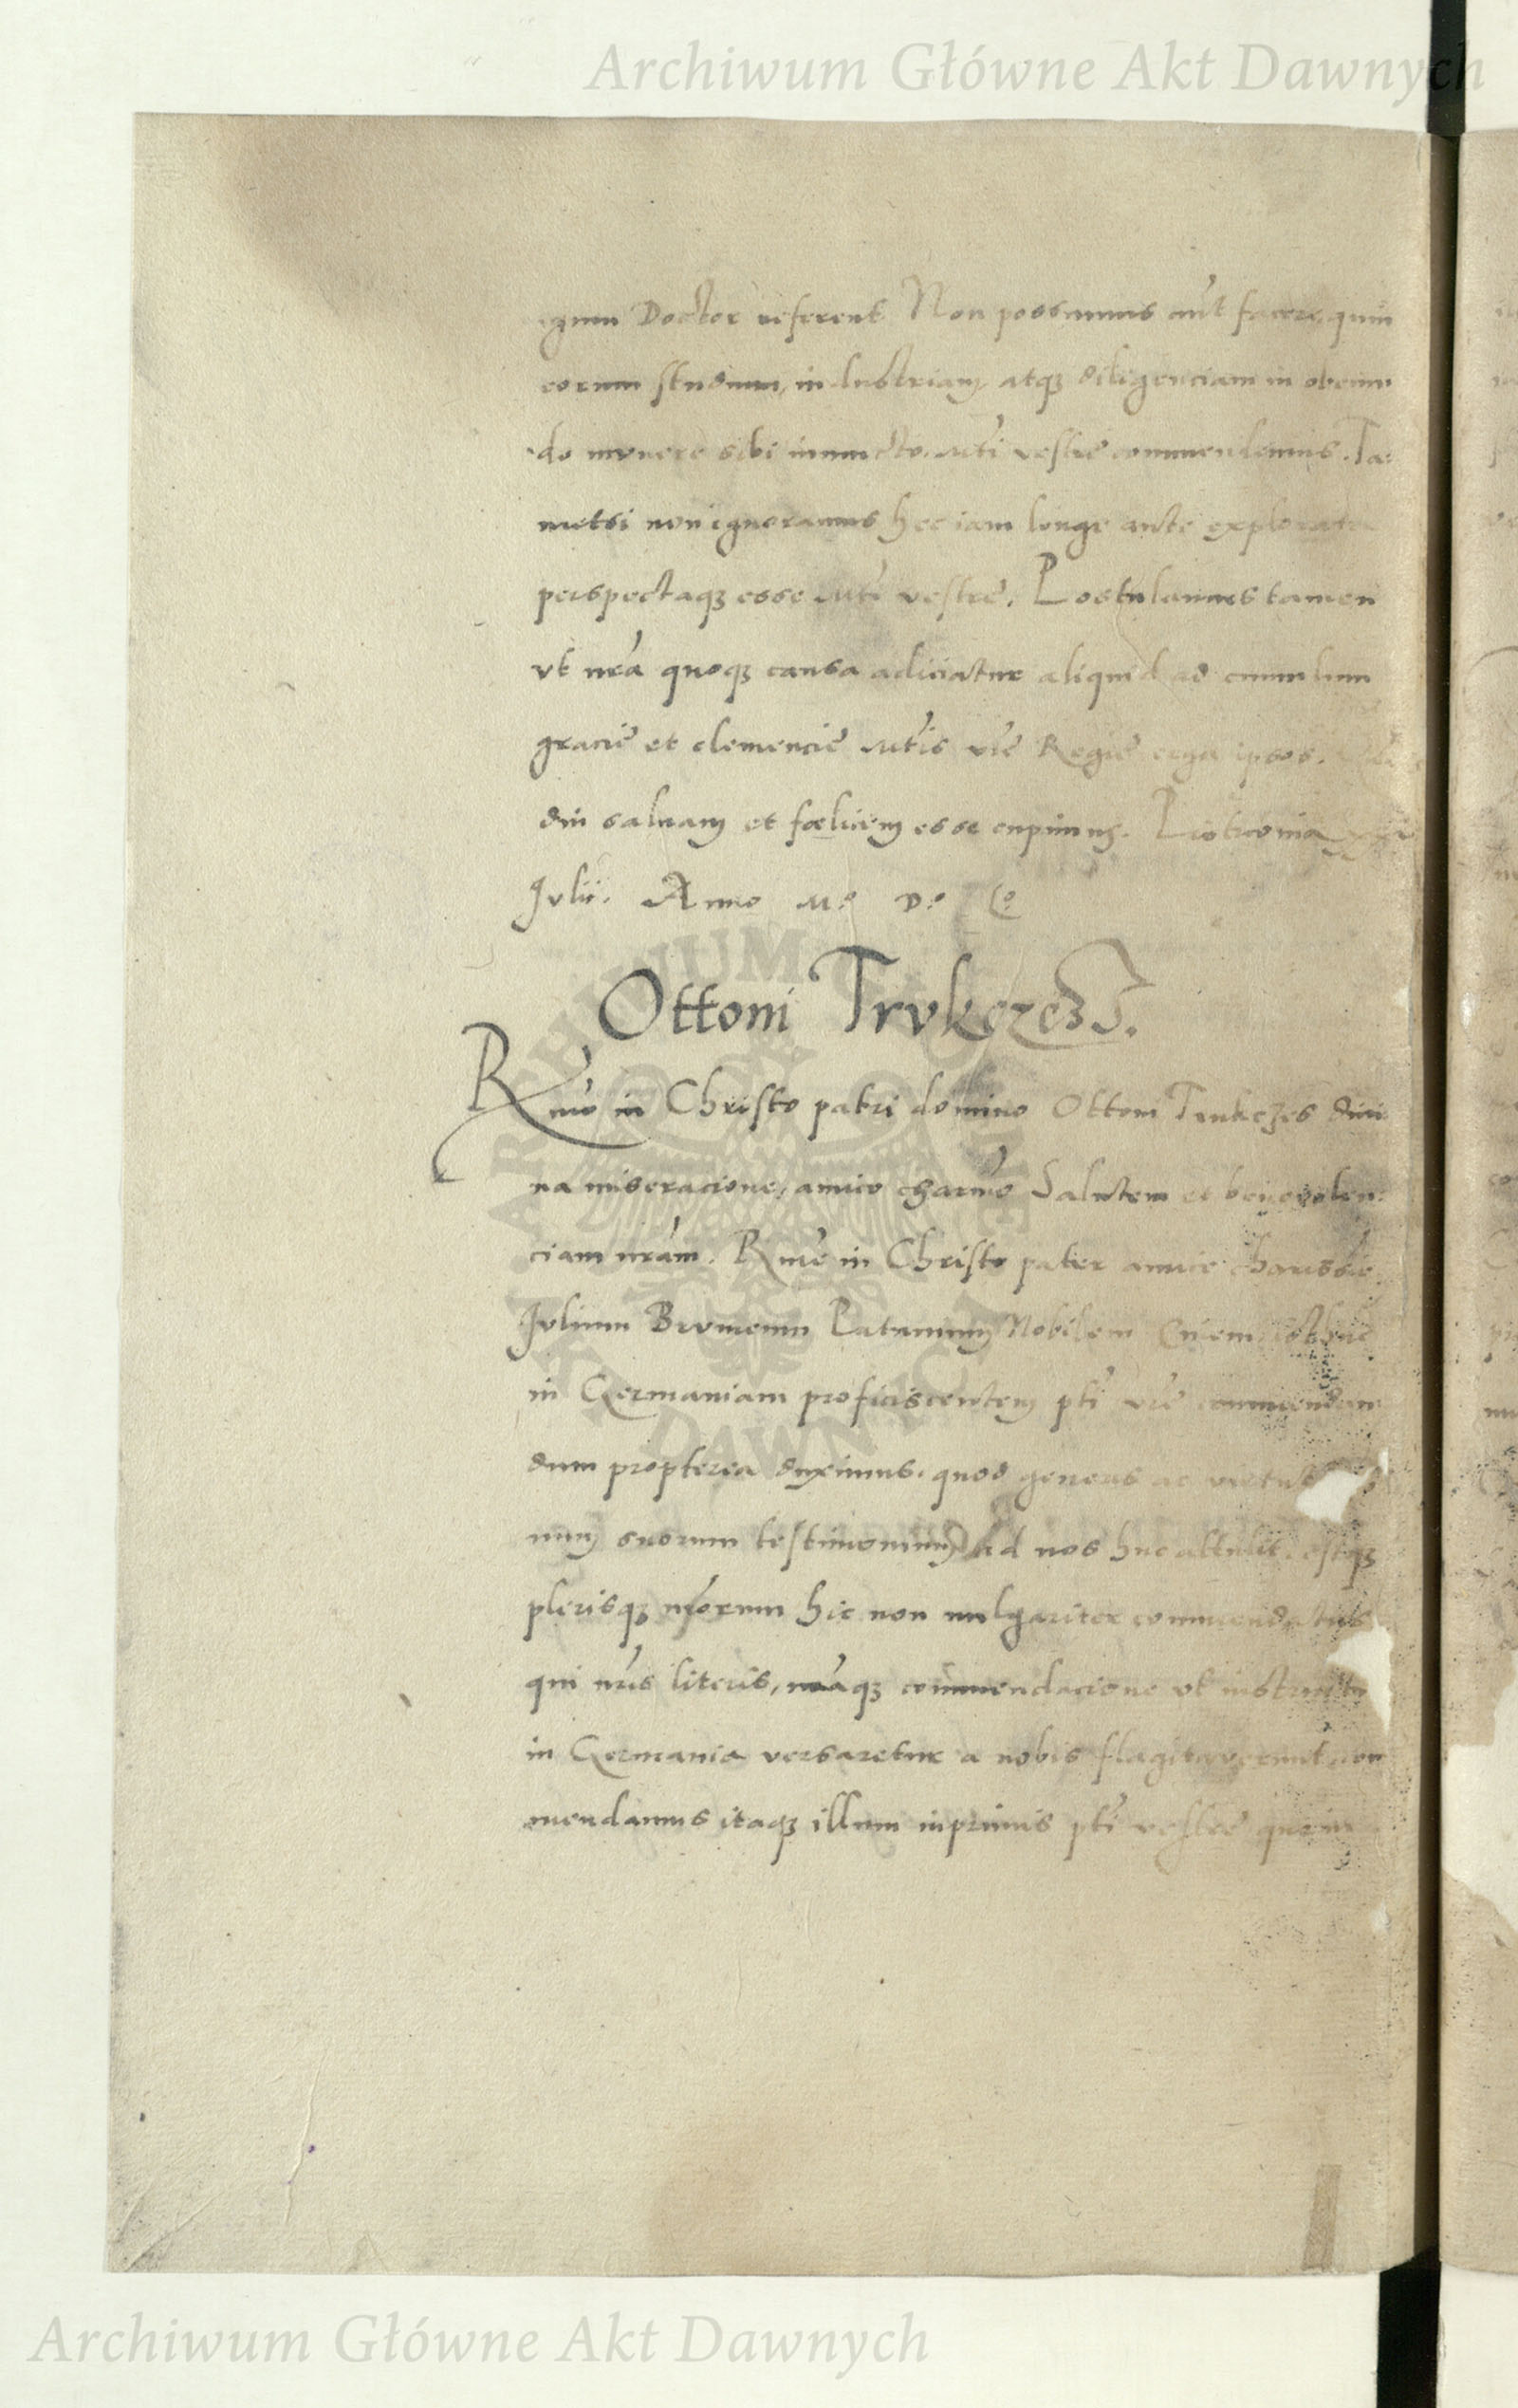 Archiwum Główne Akt Dawnych
Doctor referent Non possumus aut́ facere, quin
eorum studium, industriam atq₃ diligenciam in obeun
do munere sibi iniuncto, Mti vestre commendemus. Ta:
metsi non ignoramus hec iam longe ante explorata
perspectaq₃ esse Mti vestre. Postulamus tamen
vt nrá quoq₃ causa adiiciatur aliquid ad cumulum
gracie et clemencie Mtis vre Regie erga ipsos.
diu saluam et fœlicem esse cupimus. Piotrconia
Julii. Anno M.º D.º L.º
Ottoni Trvkczes.
Rmo in Christo patri domino Ottoni Trukczes diui
na miseracione, amico charmo Salutem et beneuolen:
ciam nram. Rme in Christo pater amice charissie.
Julium Patauinum Nobilem
in Germaniam proficiscentem pti vre commendan
dum propterea duximus, quod generis ac
num suorum testimonium ad nos huc attulit, estq₃
plerisq₃ nrorum hic non uulgariter commendatus
qui nris literis, nraq₃ commendacione vt
in Germania versaretur a nobis flagitauerunt, com
mendamus itaq₃ illum inprimis pti vestre
ARCHIWUM GŁÓWNE AKT DAWNYCH
Archiwum Główne Akt Dawnych